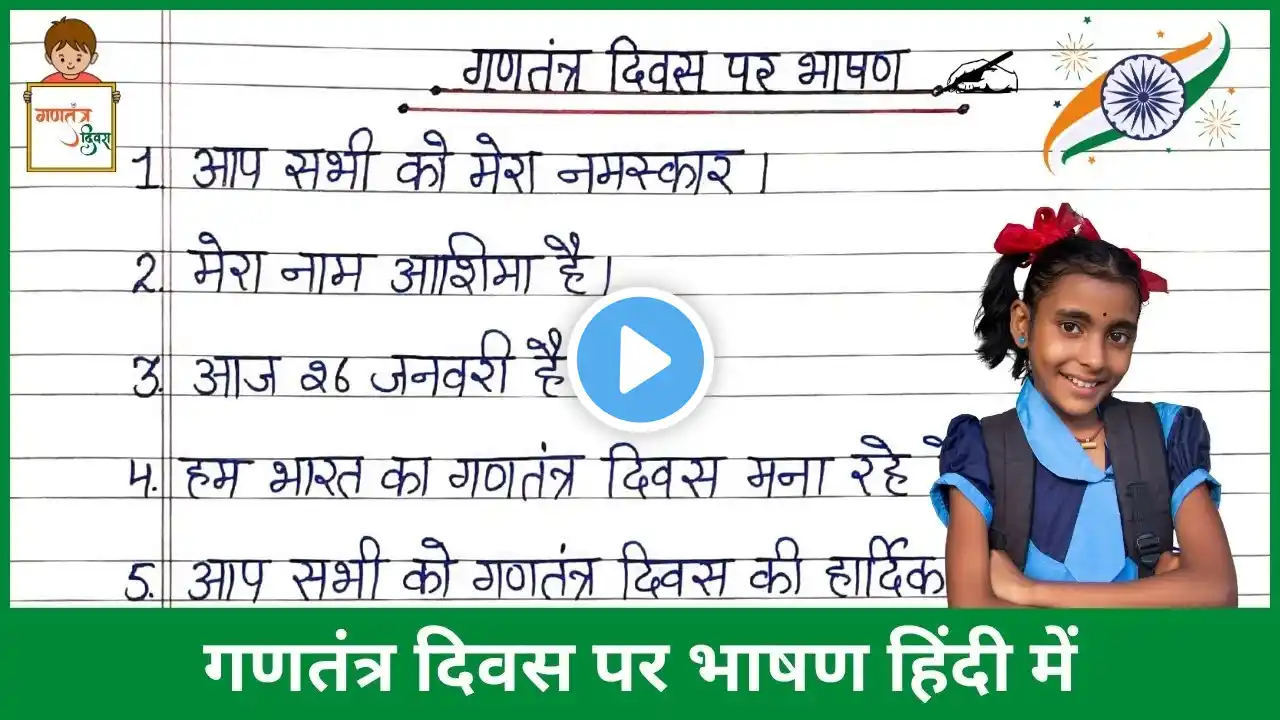 गणतंत्र दिवस पर भाषण
गणतंत्र
दिवस
1. आप सभी को मेरा नमस्कार।
2. मेरा नाम आशिमा है।
3. आज २6 जनवरी है
4. हम भारत का गणतंत्र दिवस मना रहे
5. आप सभी को गणतंत्र दिवस की हार्दिक
गणतंत्र दिवस पर भाषण हिंदी में